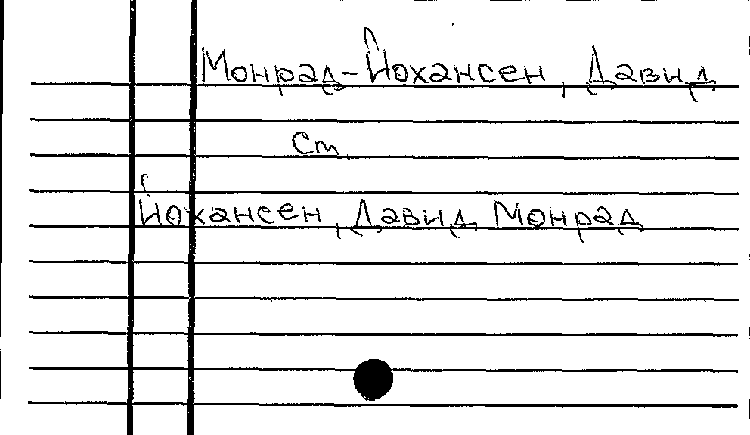 Монрад-Йохансен, Давид
Ст
Йохансен, Давид Монрад